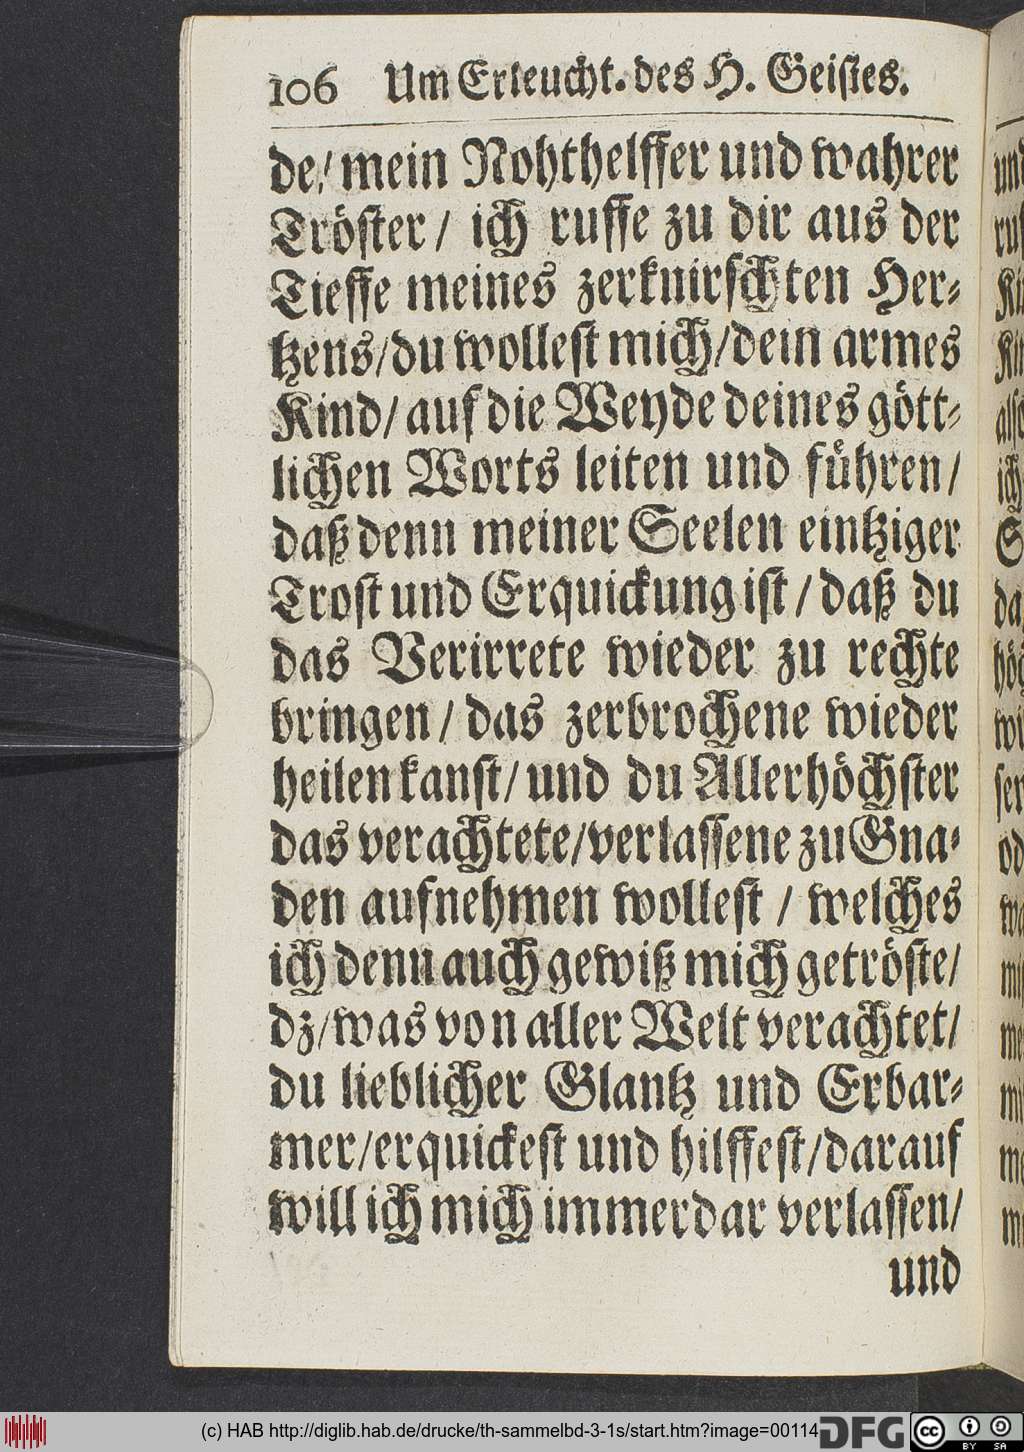 106 Um Erleucht. des H. Geistes.
de/ mein Nohthelffer und wahrer
Tröster / ich ruffe zu dir aus der
Tieffe meines zerknirschten Her-
tzens/du wollest mich/dein armes
Kind/ auf die Weyde deines gött-
lichen Worts leiten und führen/
daß denn meiner Seelen eintziger
Trost und Erquickung ist / daß du
das Verirrete wieder zu rechte
bringen / das zerbrochene wieder
heilen kanst/ und du Allerhöchster
das verachtete/verlassene zu Gna-
den aufnehmen wollest / welches
ich denn auch gewiß mich getröste/
dz/was von aller Welt verachtet/
du lieblicher Glantz und Erbar-
mer/erquickest und hilffest/darauf
will ich mich immerdar verlassen/
und
(c) HAB http://diglib.hab.de/drucke/th-sammelbd-3-1s/start.htm?image=00114
DFG
cc BY SA